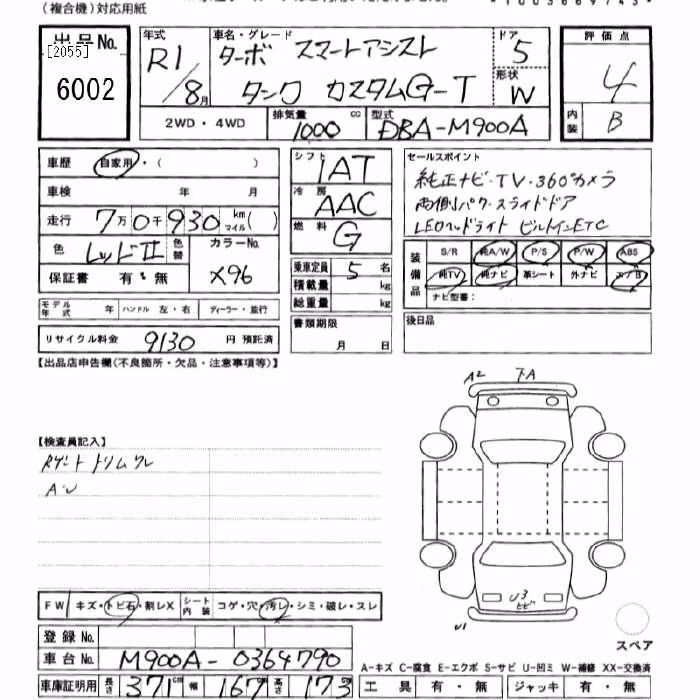 (複合機)対応用紙
出品No. [2055] 6002
年式 R1/8月
車名・グレード ターボ スマートアシスト
タンク カスタムG-T
ドア 5
形状 W
評価点 4
内装 B
2WD・4WD
排気量 1000 cc
型式 DBA-M900A
車歴 自家用・( )
車検 年 月
走行 7万0千930 km マイル( )
色 レッドII 色替 カラーNo. X96
保証書 有・無
モデル年式 年 ハンドル 左・右 ディーラー・並行
リサイクル料金 9130 円 預託済
シフト IAT
冷房 AAC
燃料 G
乗車定員 5 名
積載量 kg
総重量 kg
書類期限
月 日
セールスポイント
純正ナビ・TV・360°カメラ
両側パワースライドドア
LEDヘッドライト ビルトインETC
装備品 S/R 純A/W P/S P/W ABS
純TV 純ナビ 革シート 外ナビ エアB
ナビ型番:
後日品
【出品店申告欄(不良箇所・欠品・注意事項等)】
A2 下A
【検査員記入】
Rゲートトリムワレ
U3
ヒビ
U1
FW キズ・トビ石・割レX シート内装 コゲ・穴・汚レ・シミ・破レ・スレ
スペア
登録No.
車台No. M900A-0364790
車庫証明用 長さ 371cm 幅 167cm 高さ 173cm
A-キズ C-腐食 E-エクボ S-サビ U-凹ミ W-補修 XX-交換済
工具 有・無 ジャッキ 有・無